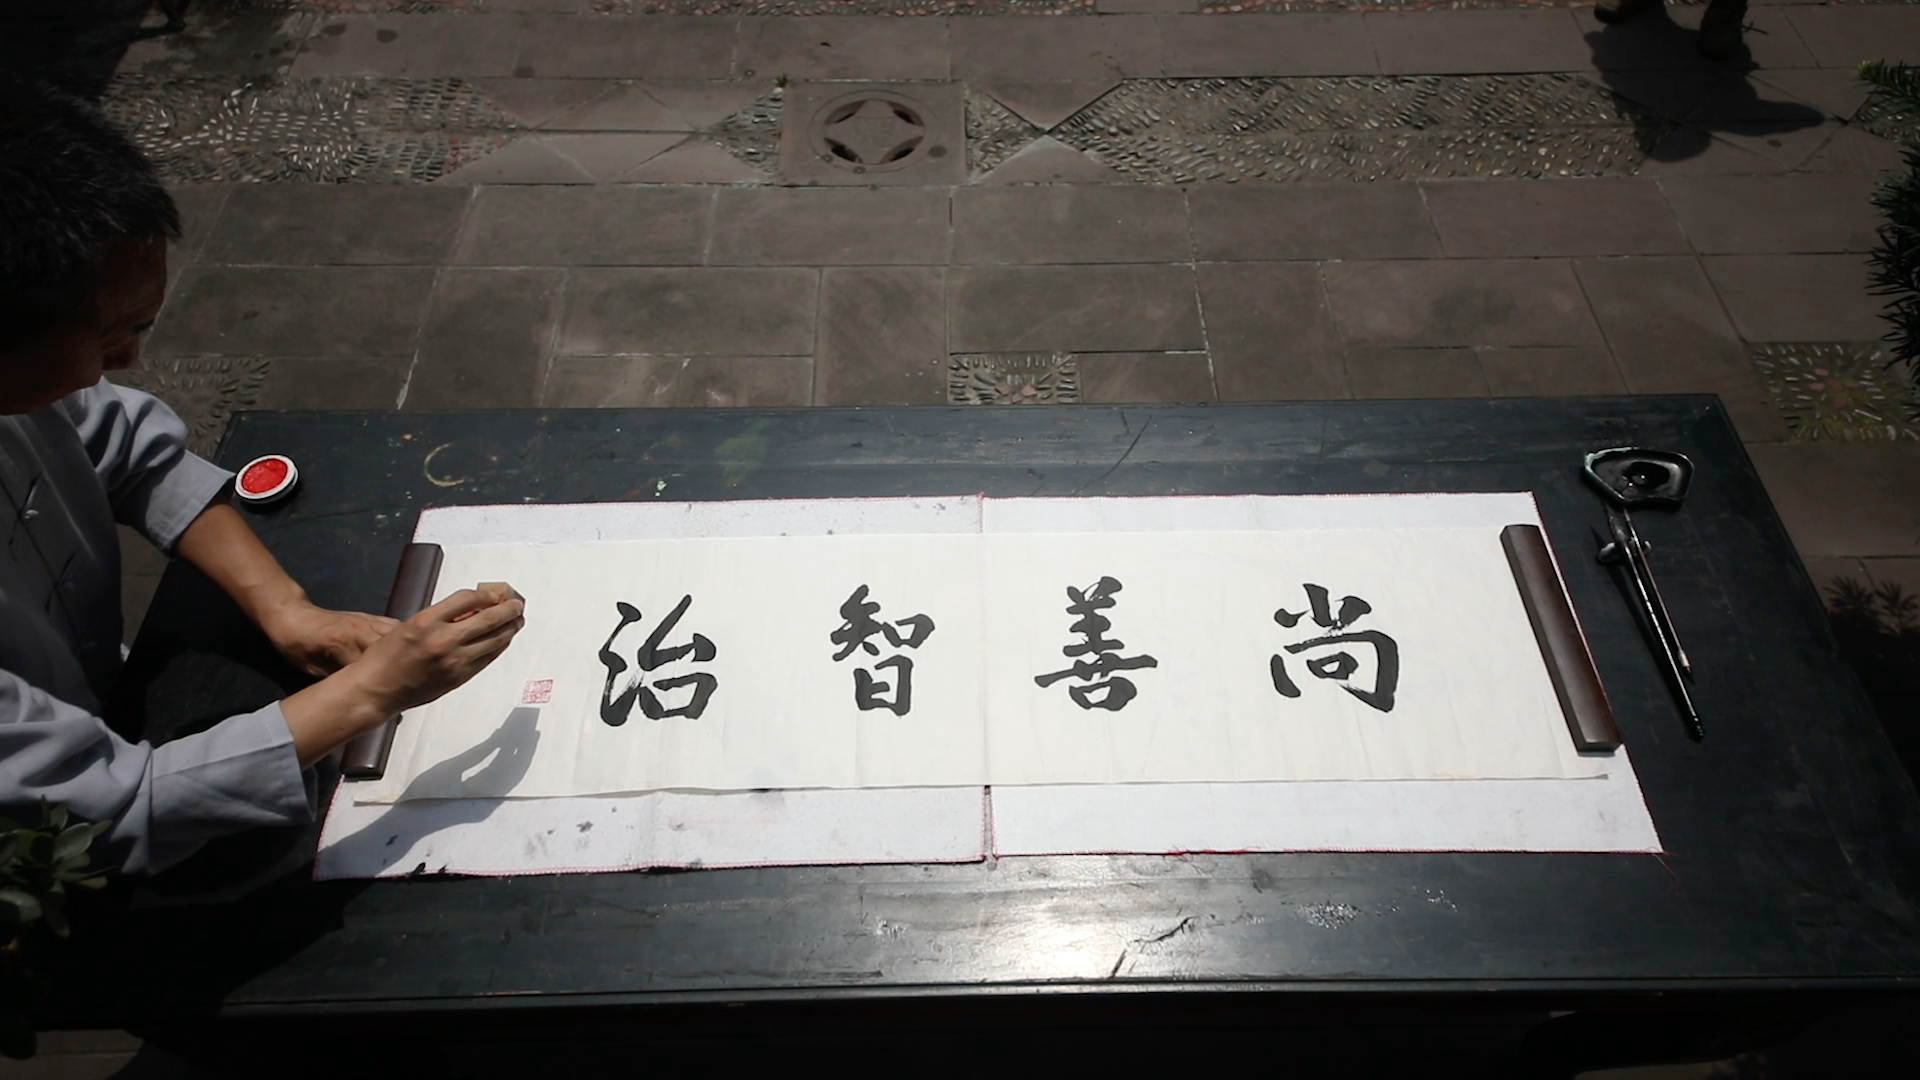 尚善智治